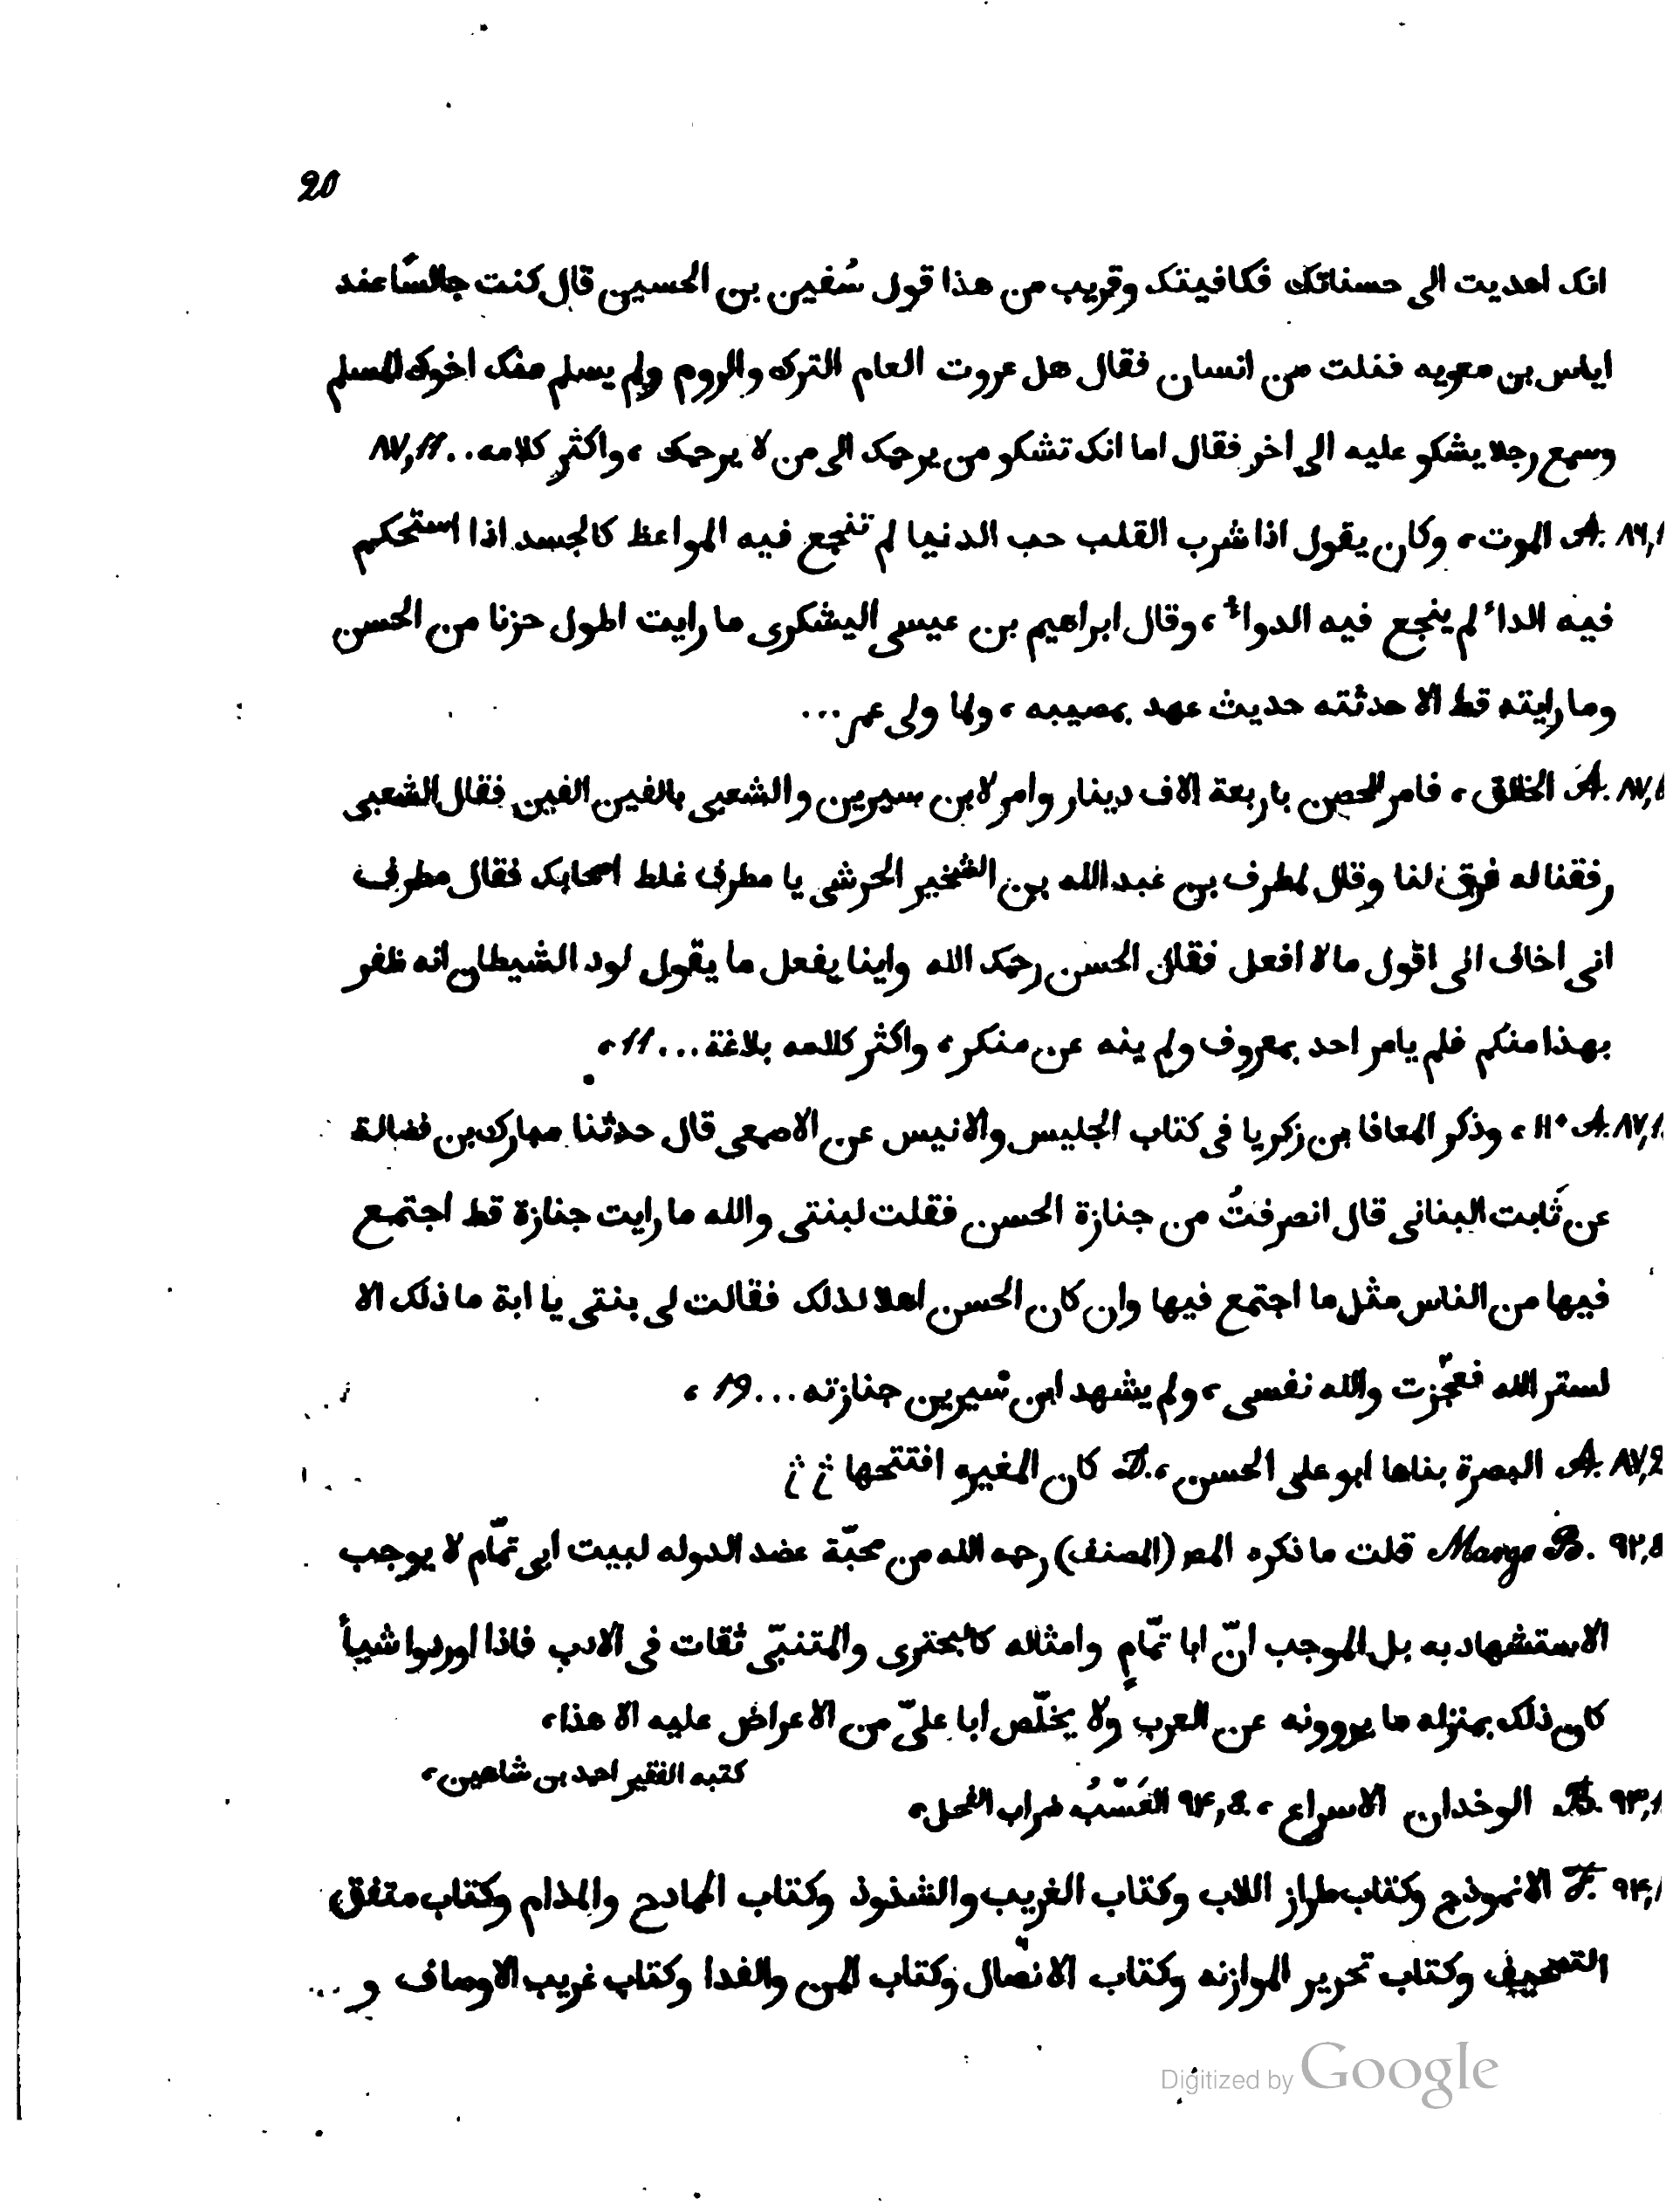 20
انك اهديت الى حسناتك فكافيتك وقريب من هذا قول سُفين بن الحسين قال كنت جالسًا عند
اياس بن معويه فنلت من انسان فقال هل عروت العام الترك والروم ولم يسلم منك اخوك المسلم
وسمع رجلا يشكو عليه الى اخر فقال اما انك تشكو من يرحمك الى من لا يرحمك ، واكثر كلامه .. ٨٧,11
A. ٨٦,1 الموت ، وكان يقول اذا شرب القلب حب الدنيا لم تنجع فيه المواعظ كالجسد اذا استحكم
فيه الداء لم ينجع فيه الدواء ، وقال ابراهيم بن عيسى اليشكرى ما رايت اطول حزنا من الحسن
وما رايته قط الا حدثته حديث عهد بمصيبه ، ولما ولى عمر ...
A. ٨٧, الخلق ، فامر للحصن باربعة الاف دينار وامر لابن سيرين والشعبى بالفين الفين فقال الشعبى
رفقنا له فرقق لنا وقال لمطرف بن عبد الله بن الشخير الحرشى يا مطرف غلط اصحابك فقال مطرف
انى اخاف الى اقول ما لا افعل فقال الحسن رحمك الله واينا يفعل ما يقول لود الشيطان انه ظفر
بهذا منكم فلم يامر احد بمعروف ولم ينه عن منكر ، واكثر كلامه بلاغة ... 11 ،
A. ٨٧,1 ١١٠ ، وذكر المعافا بن زكريا فى كتاب الجليس والانيس عن الاصمعى قال حدثنا مبارك بن فضالة
عن ثَابت البنانى قال انصرفتُ من جنازة الحسن فقلت لبنتى والله ما رايت جنازة قط اجتمع
فيها من الناس مثل ما اجتمع فيها وان كان الحسن اهلا لذلك فقالت لى بنتى يا ابة ما ذلك الا
لستر الله فعجّزت والله نفسى ، ولم يشهد ابن سيرين جنازته ... 19 ،
A. ٨٧,2 البصرة بناها ابو على الحسن ، D. كان المغيره افتتحها
٩٢, Margo B. قلت ما ذكره المص (المصنف) رحمه الله من محبّة عضد الدوله لبيت ابى تمّام لا يوجب
الاستشهاد به بل الموجب انّ ابا تمّامٍ وامثاله كالبحترى والمتنبّى ثقات فى الادب فاذا اوردوا شيأً
كان ذلك بمنزله ما يروونه عن العرب ولا يخلّص ابا علىّ من الاعراض عليه الا هذا ،
كتبه الفقير احمد بن شاهين ،
B. ٩٣,1 الوخدان الاسراع ، ٩٤,8. العَسْبُ ضراب الفحل ،
F. ٩٤,1 الانموذج وكتاب طراز اللاب وكتاب الغريب والشذوذ وكتاب المادح والمذام وكتاب متفق
التصحيف وكتاب تحرير الموازنه وكتاب الانصال وكتاب المن والفدا وكتاب غريب الاوصاف و ...
Digitized by Google